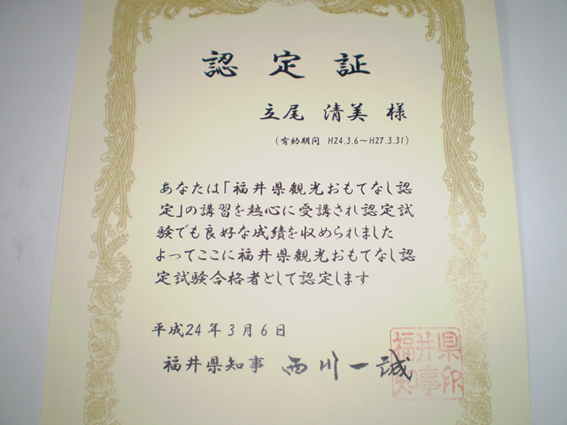 認定証
立尾 清美 様
(有効期間 H24.3.6～H27.3.31)
あなたは「福井県観光おもてなし認
定」の講習を熱心に受講され認定試
験でも良好な成績を収められました
よってここに福井県観光おもてなし認
定試験合格者として認定します
平成24年3月6日
福井県知事 西川一誠
福井県
知事印